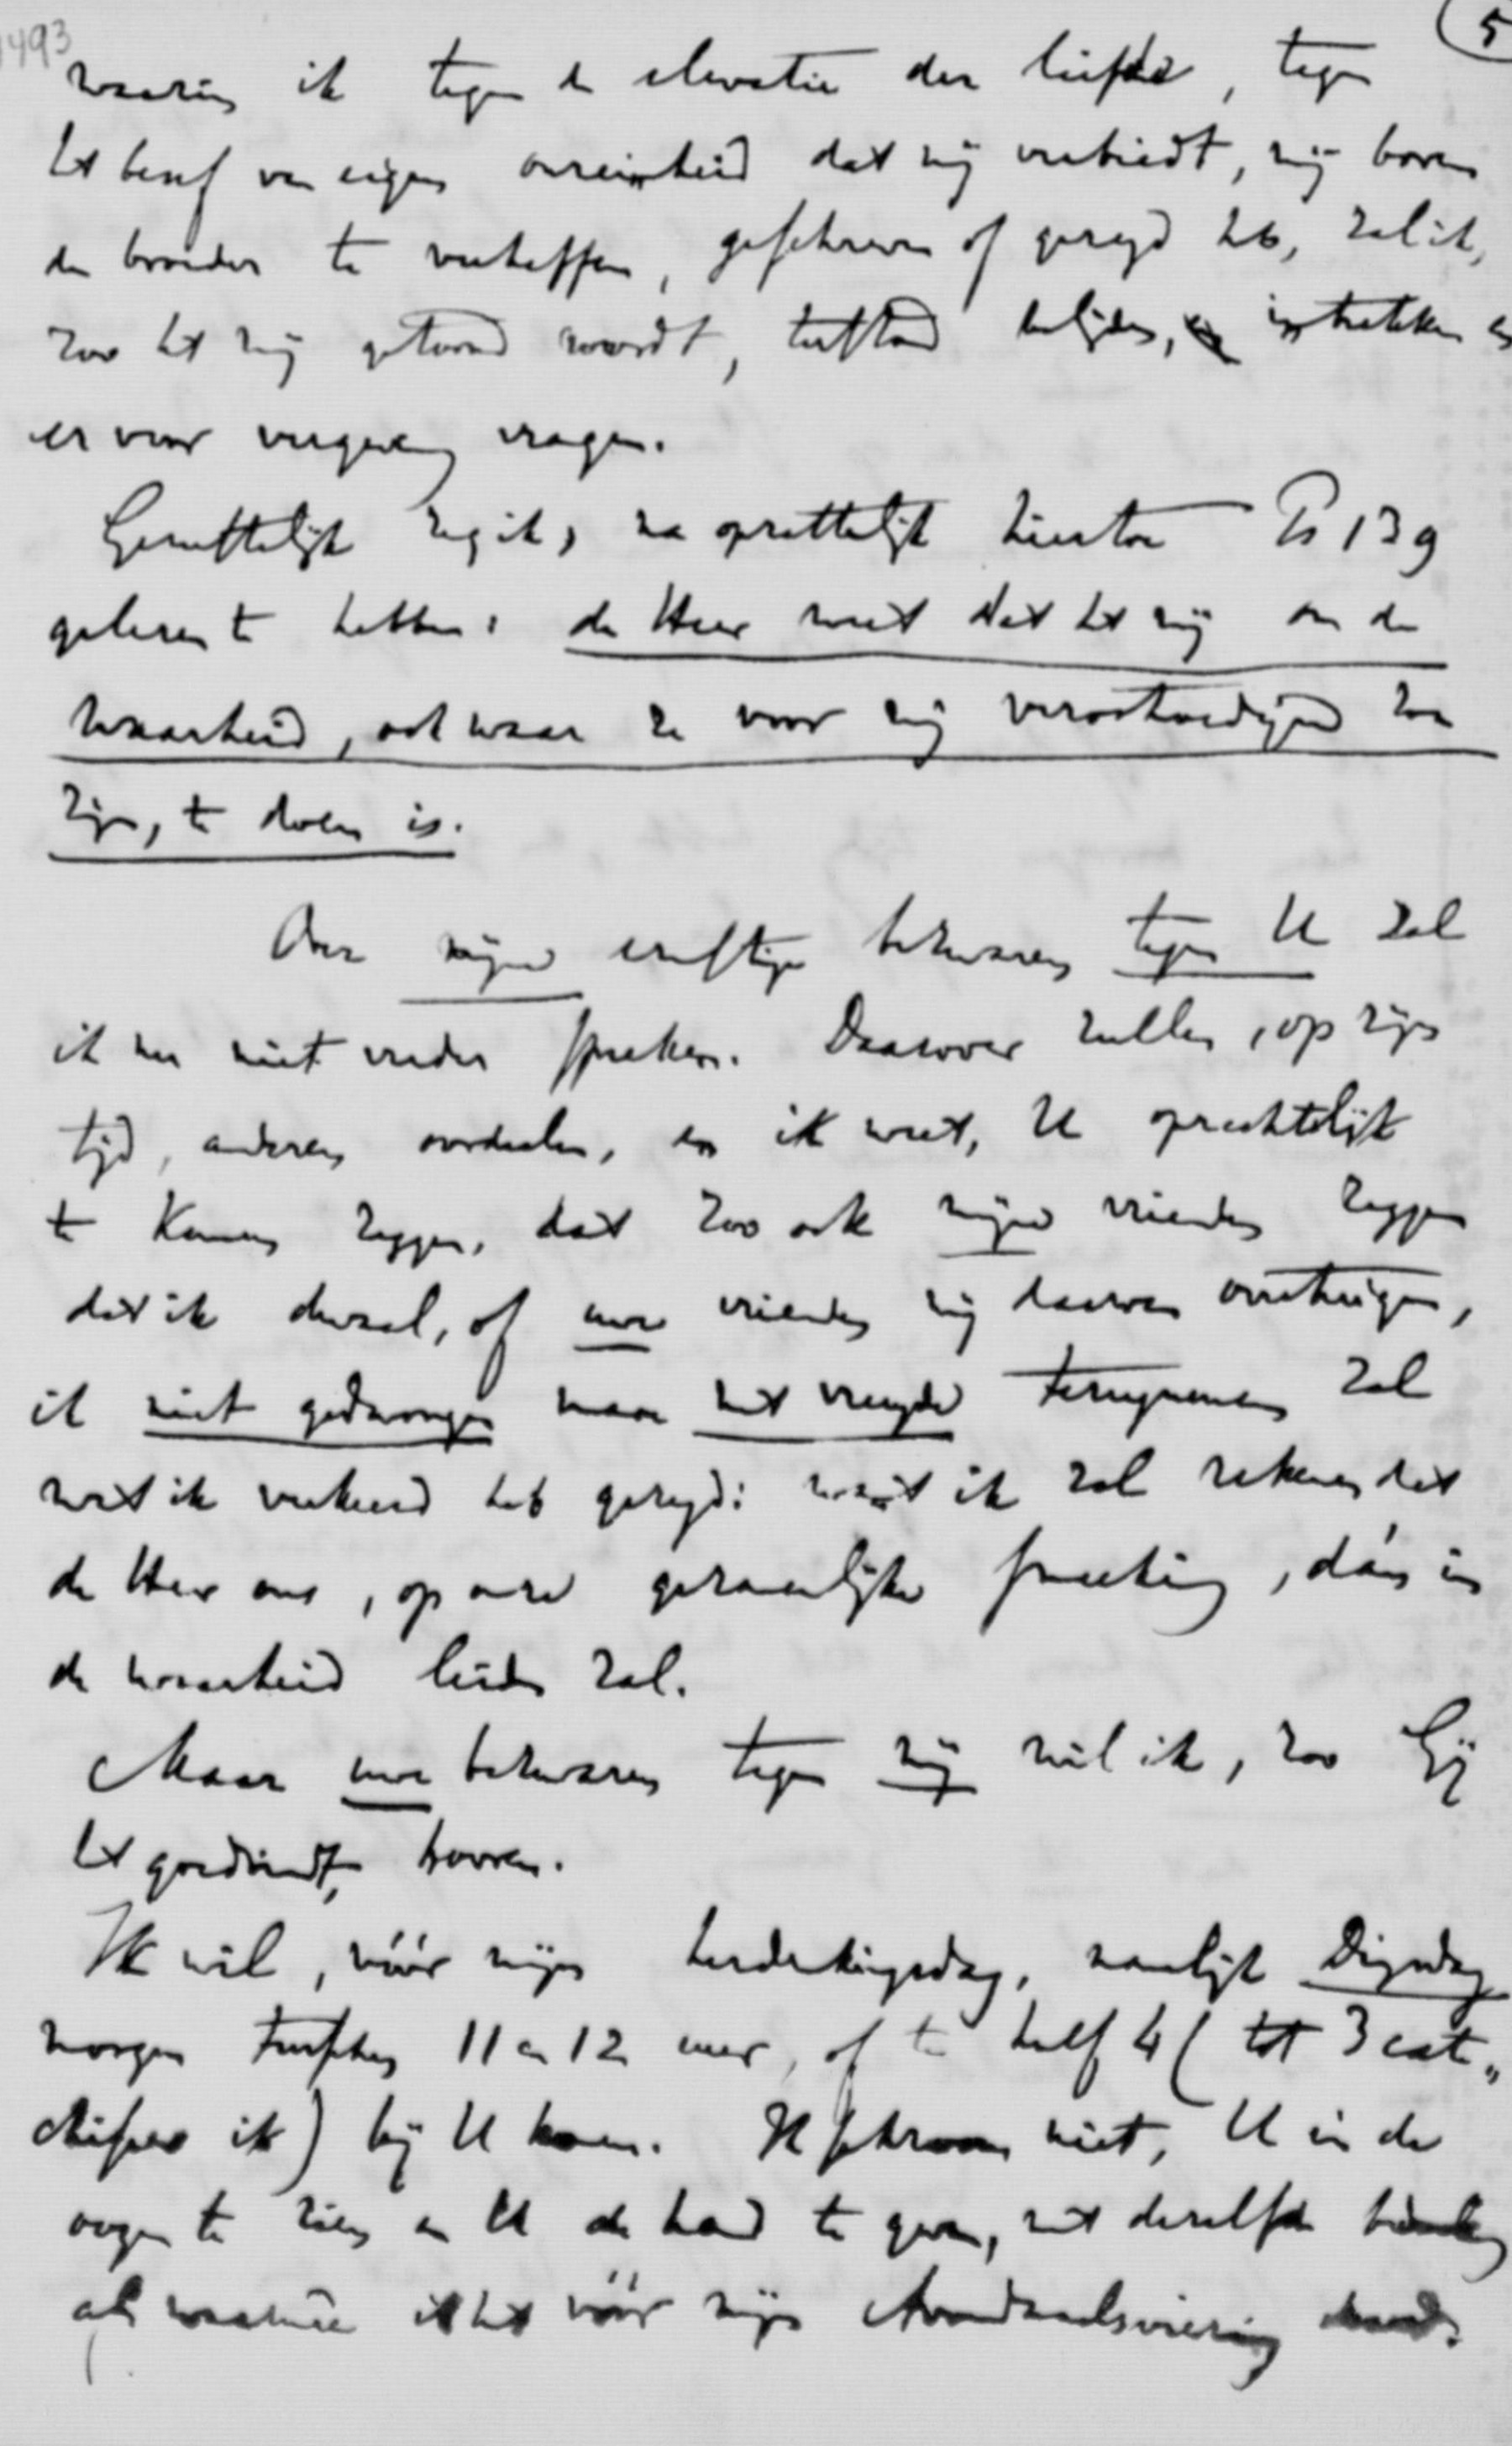 1493
5
waarin ik tegen de elevatie der liefde, tegen
het besef van eigen onreinheid dat mij verbiedt, mij boven
den broeder te verheffen, geschreven of gezegd heb, zal ik,
zoo het mij getoond wordt, belijden, intrekken en
er voor vergeving vragen.
zeg ik, na oprechtelijk hiertoe Ps 139
gelezen te hebben: de Heer weet dat het mij om de
waarheid, ook waar ze voor mij verootmoedigend zou
zijn, te doen is.
Over mijne ernstige bezwaren tegen U zal
ik nu niet verder spreken. Daarover zullen, op zijn
tijd, anderen oordeelen, en ik weet, U oprechtelijk
te kunnen zeggen, dat zoo ook mijne vrienden zeggen
dat ik dwaal, of uwe vrienden mij daarvan overtuigen,
ik niet gedwongen maar met vreugde terugnemen zal
wat ik verkeerd heb gezegd: want ik zal rekenen dat
de Heer ons, op onze gezamenlijke smeeking, dán in
de waarheid leiden zal.
Maar uwe bezwaren tegen mij wil ik, zoo Gij
het goedvindt, hooren.
Ik wil, vóór mijn herdenkingsdag, namelijk Dinsdag
morgen tusschen 11 en 12 uur, of te half 4 (tot 3 cate„
chiseer ik) bij U komen. Ik schroom niet, U in de
oogen te zien en U de hand te geven, met dezelfde
als waarmee ik het vóór mijn Avondmaalsviering deed.